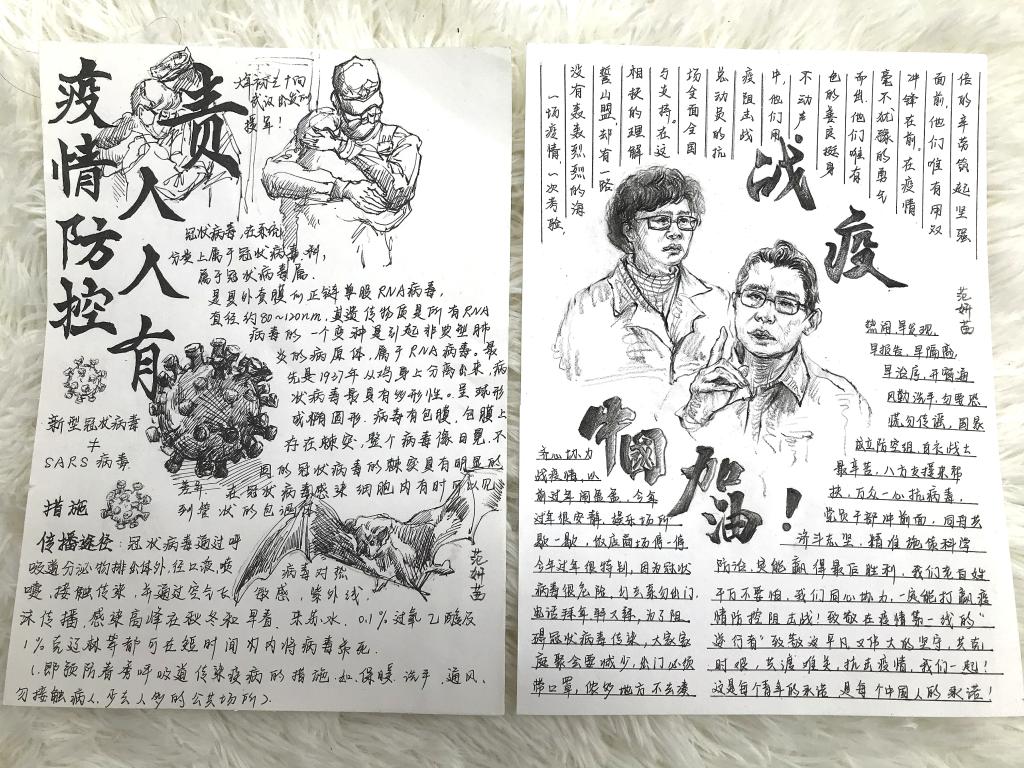 疫情防控
人人有
责
大年初三十向
武汉出发的
援军！
冠状病毒，在系统
分类上属于冠状病毒科，
属于冠状病毒属．
是具外套膜的正链单股RNA病毒，
直径约80～120nm，其遗传物质是所有RNA
病毒的一个变种是引起非典型肺
炎的病原体，属于RNA病毒．最
先是1937年从鸡身上分离出来，病
状病毒具有多形性．呈球形
或椭圆形．病毒有包膜．包膜上
存在棘突，整个病毒像日冕，不
同的冠状病毒的棘突具有明显的
差异．在冠状病毒感染细胞内有时可以见
到管状的包涵体
新型冠状病毒
≠
SARS病毒．
措施
传播途径：冠状病毒通过呼
吸道分泌物排出体外，经口液，喷
嚏，接触传染，并通过空气飞
病毒对热
敏感，紫外线
沫传播．感染高峰在秋冬和早春．来苏水．0.1％过氧乙酸及
1％克辽林等都可在短时间内将病毒杀死．
(．即预防春季呼吸道传染疫病的措施．如．保暖．洗手．通风．
勿接触病人．少去人多的公共场所)．
范妍茜
一场疫情，一次考验，
没有轰轰烈烈的海
誓山盟，却有一路
相扶的理解
与支持．在这
场全面全国
总动员的抗
疫阻击战
中，他们用
不动声
色的善良挺身
而出．他们唯有
毫不犹豫的勇气
冲锋在前．在疫情
面前，他们唯有用双
倍的辛苦筑起坚强
战疫
范妍茜
中國加油！
早发现
早报告，早隔离，
早治疗，开窗通
风勤洗手，勿恐慌
成立防控组，百余战士
最辛苦，八方支援来帮
扶，万众一心抗病毒，
党员干部冲前面，同舟共
济斗志坚，精准施策科学
防治，定能赢得最后胜利，我们老百姓
千万不要怕，我们同心协力，一定能打赢疫
情防控阻击战！致敬在疫情第一线的“
逆行者”致敬这平凡又伟大的坚守，共克
时艰，共渡难关，抗击疫情，我们一起！
这是每个青年的承诺 是每个中国人的承诺！
齐心协力
战疫情，以
前过年闹，今年
过年很安静，娱乐场所
歇一歇，饭店商场停一停
今年过年很特别，因为冠状
病毒很危险，
电话拜年，为了阻
碍冠状病毒传染，大家家
庭聚会要减少，出门必须
带口罩，很多地方不去凑